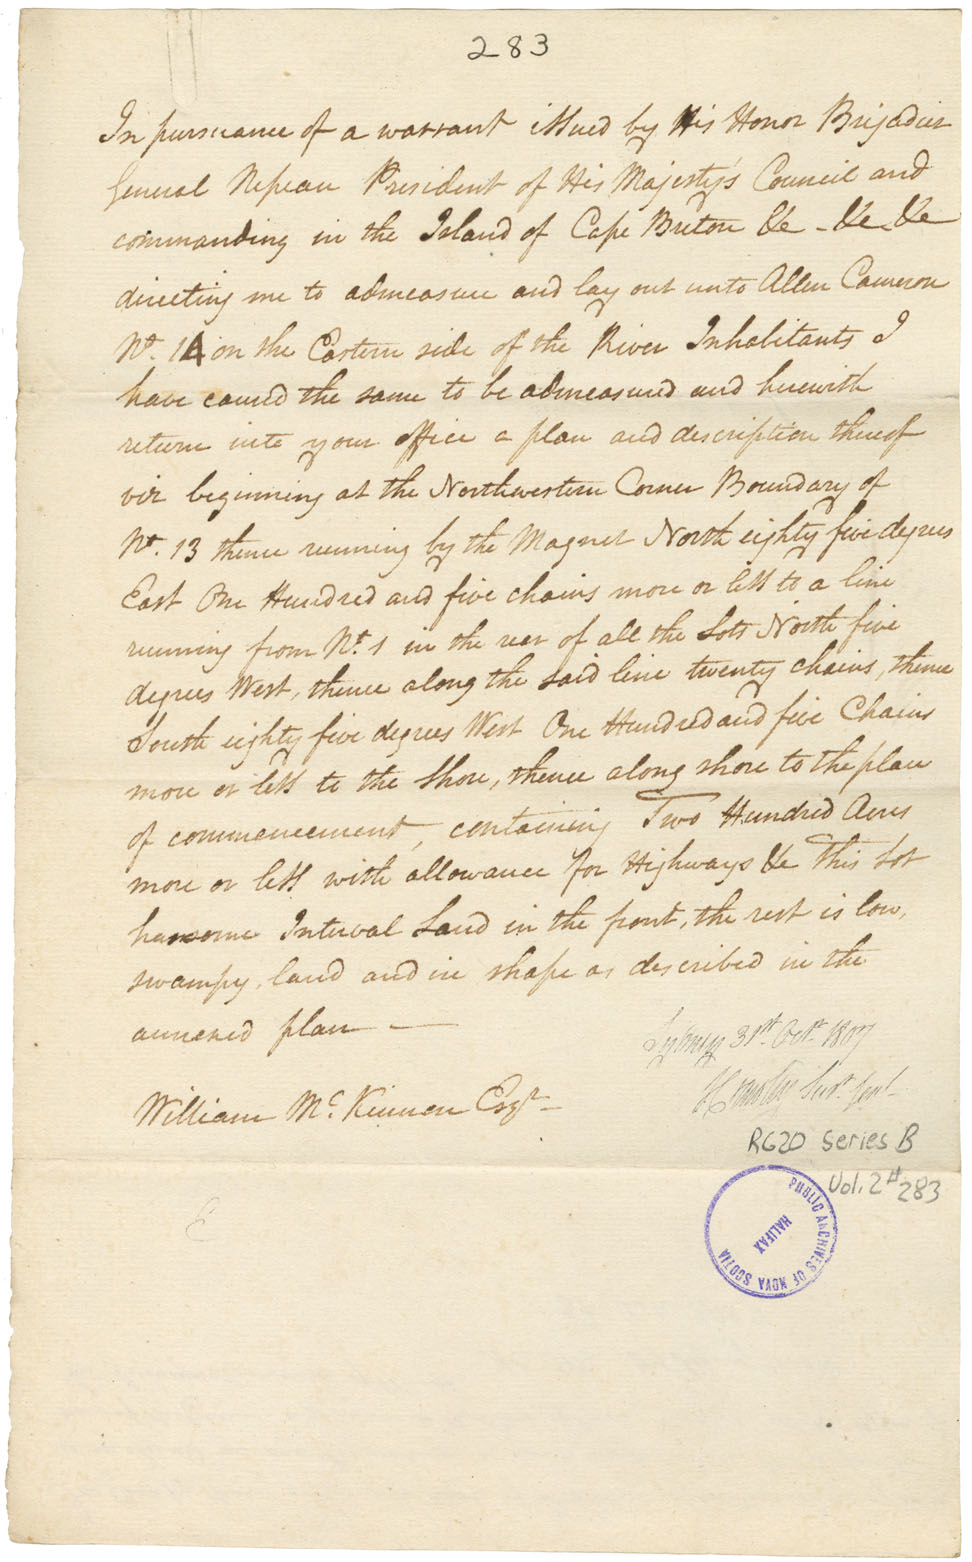 283
In pursuance of a warrant issued by His Honor Brigadier
General Nepean President of His Majesty's Council and
commanding in the Island of Cape Breton &c - &c &c
directing me to admeasure and lay out unto Allen Cameron
No. 14 on the Eastern side of the River Inhabitants I
have caused the same to be admeasured and herewith
return into your office a plan and description thereof
viz beginning at the Northwestern Corner Boundary of
No. 13 thence running by the Magnet North eighty five degrees
East One Hundred and five chains more or less to a line
running from No. 1 in the rear of all the Lots North five
degrees West, thence along the said line twenty chains, thence
South eighty five degrees West One Hundred and five Chains
more or less to the Shore, thence along shore to the place
of commencement, containing Two Hundred Acres
more or less with allowance for Highways &c This Lot
has some Interval Land in the front, the rest is low,
swampy, land and in shape as described in the
annexed plan —
Sydney 31st. Octr. 1807
Survr. Genl.
William McKinnon Esqr
RG20 Series B
Vol. 2 # 283
PUBLIC ARCHIVES OF NOVA SCOTIA
HALIFAX